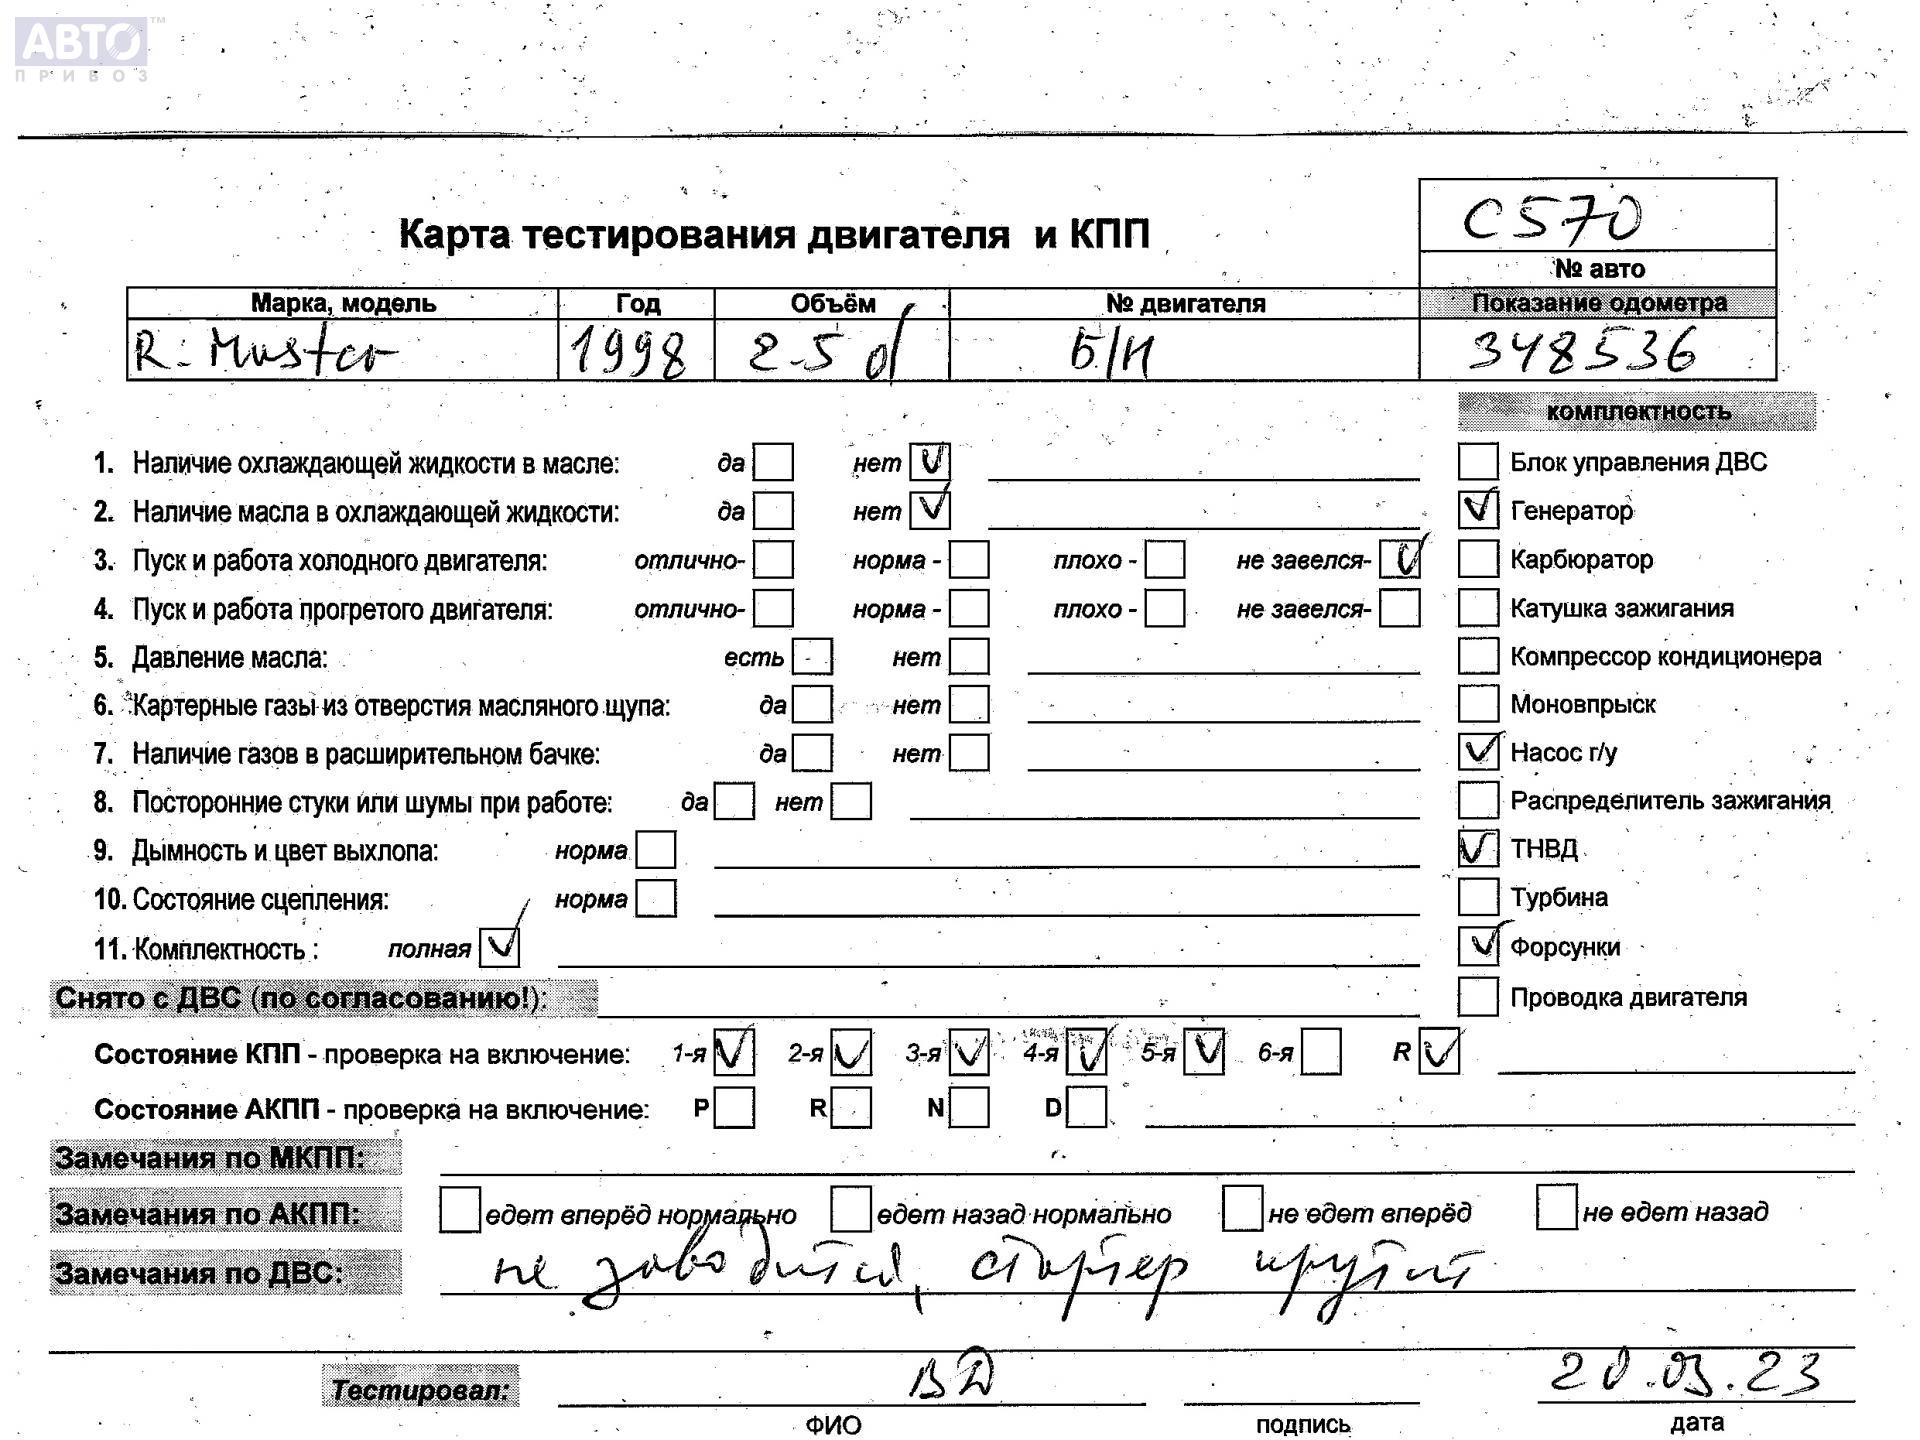 АВТО™
ПРИВОЗ
С570
Карта тестирования двигателя и КПП
№ авто
Марка, модель Год Объём № двигателя Показание одометра
R. Master 1998 2.5 d Б/Н 348536
комплектность
1. Наличие охлаждающей жидкости в масле: да нет Блок управления ДВС
2. Наличие масла в охлаждающей жидкости: да нет Генератор
3. Пуск и работа холодного двигателя: отлично- норма - плохо - не завелся- Карбюратор
4. Пуск и работа прогретого двигателя: отлично- норма - плохо - не завелся- Катушка зажигания
5. Давление масла: есть нет Компрессор кондиционера
6. Картерные газы из отверстия масляного щупа: да нет Моновпрыск
7. Наличие газов в расширительном бачке: да нет Насос г/у
8. Посторонние стуки или шумы при работе: да нет Распределитель зажигания
9. Дымность и цвет выхлопа: норма ТНВД
10. Состояние сцепления: норма Турбина
11. Комплектность : полная Форсунки
Снято с ДВС (по согласованию!): Проводка двигателя
Состояние КПП - проверка на включение: 1-я 2-я 3-я 4-я 5-я 6-я R
Состояние АКПП - проверка на включение: P R N D
Замечания по МКПП:
Замечания по АКПП: едет вперёд нормально едет назад нормально не едет вперёд не едет назад
Замечания по ДВС: не заводится, стартер крутит
Тестировал: ВД 20.03.23
ФИО подпись дата